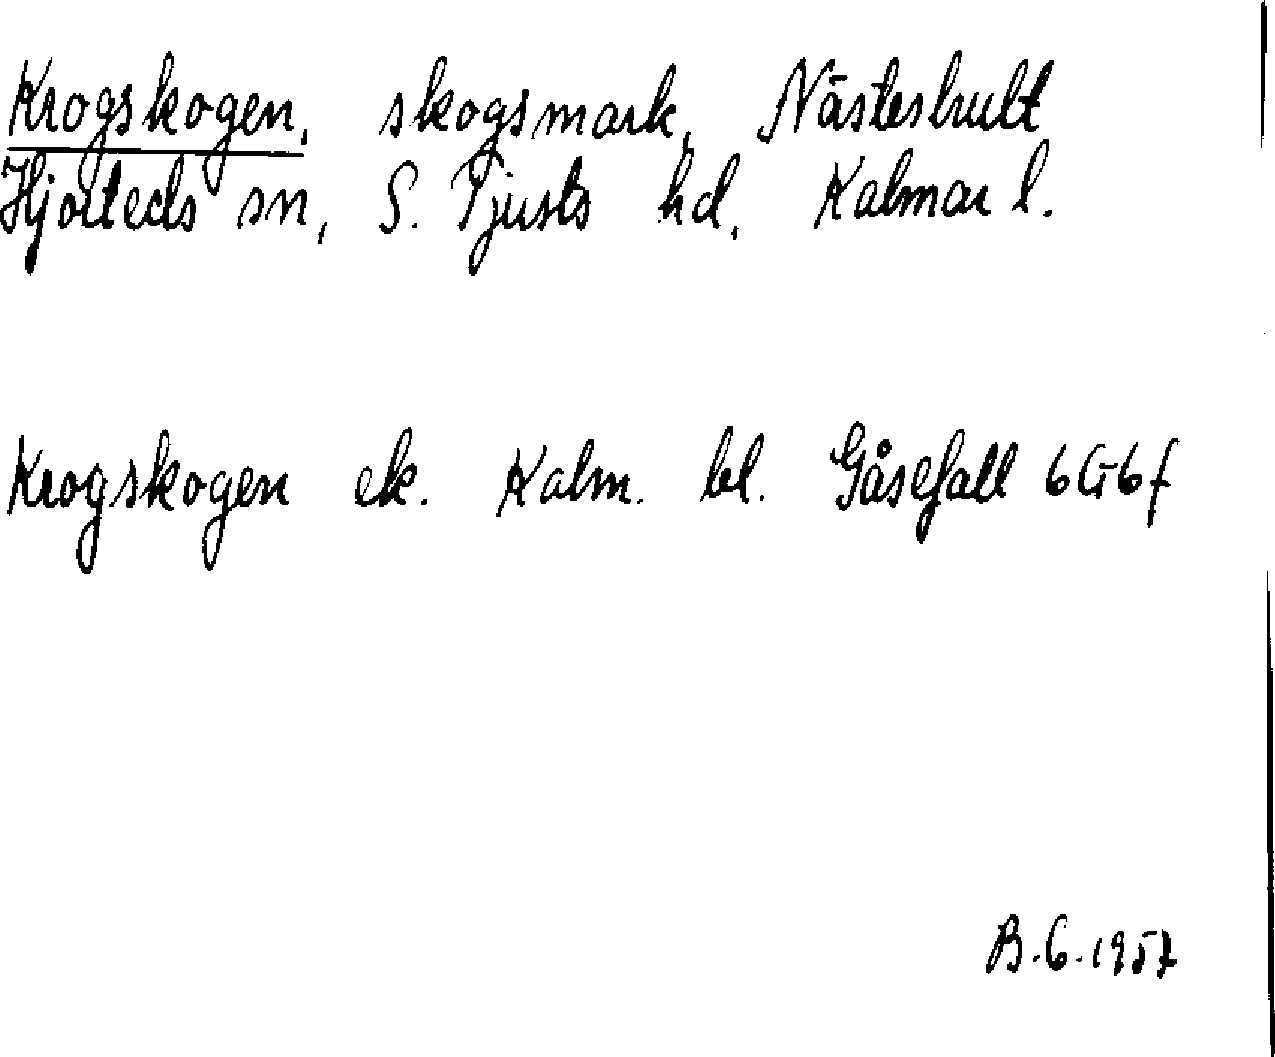 Krogskogen, skogsmark, Nästeshult
Hjorteds sn, S. Tjusts hd, Kalmar l.
Krogskogen ek. Kalm. bl. Gåsefall 6G6f
B.G.1957